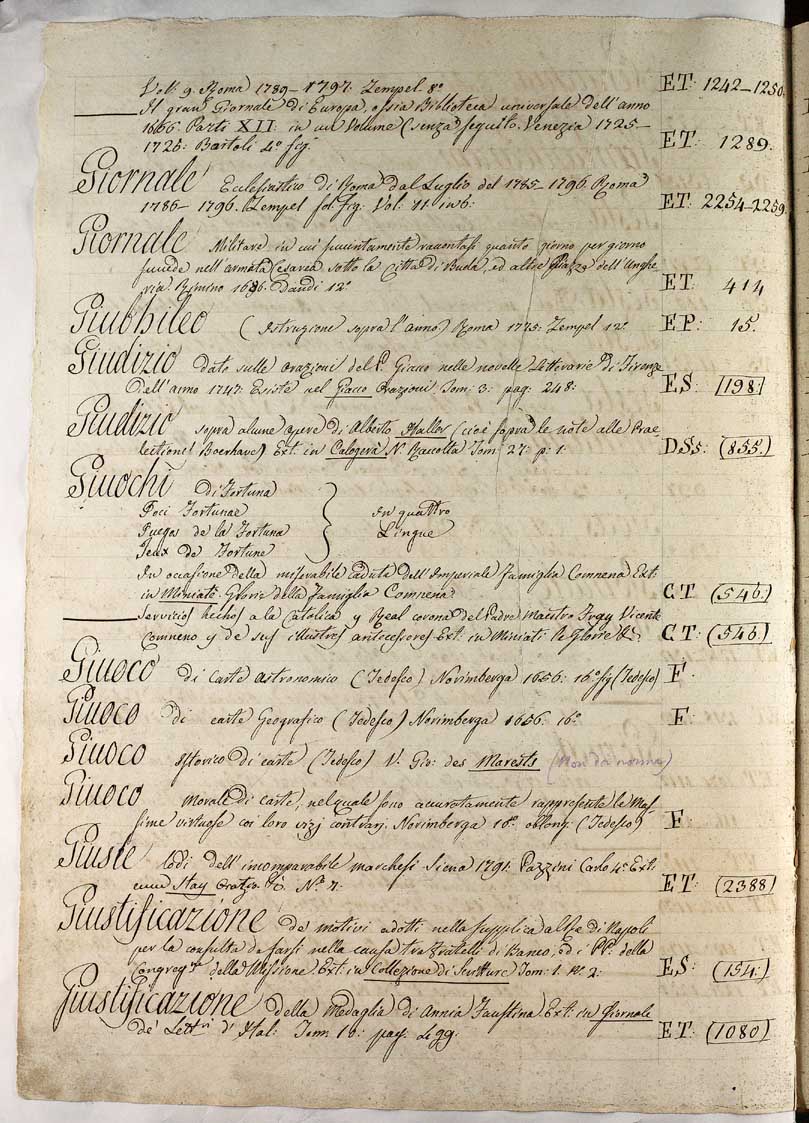 Vol: 9. Roma 1789–1797: Zempel 8° ET: 1242–1250.
Il gran Giornale di Europa, ossia Biblioteca universale dell'anno
Parti XII: in un Volume (senza seguito. Venezia 1725–
1726: Bartoli 4° fig: ET: 1289.
Giornale Ecclesiastico di Roma dal Luglio del 1785–1796. Roma
1786–1796. Zempel fol. fig. Vol: 11. in 6: ET: 2254–2259.
Giornale Militare in cui succintamente raccontasi quanto giorno per giorno
succede nell'armata Cesarea sotto la Città di Buda, ed altre Piazze dell'Unghe
ria. Rimino 1686. Dandi 12° ET: 414
Giubhileo (Istruzione sopra l'anno) Roma 1775: Zempel 12° EP: 15.
Giudizio dato sulle orazioni del P. Giacco nelle novelle Letterarie di Firenze
dell'anno 1747: Esiste nel Giacco Orazioni Tom: 3: pag: 248: ES: (198.)
Giudizio sopra alcune opere di Alberto Haller (cioè sopra le note alle Prae-
lectiones Boerhave) Ext: in Calogerà N. Raccolta Tom: 27: p: 1: DSs: (855.)
Giuochi di Fortuna
Foci Fortunae In quattro
Juegos de la Fortuna Lingue
Jeux de Fortune
In occasione della miserabile caduta dell'Imperiale Famiglia Comnena Ext:
in Miniati Glorie della Famiglia Comnena CT (546.)
Servicios hechos a la Catolica y Real corona del Padre Maestro Fray Vicente
Comneno y de sus illustres antecesores Ext: in Miniati le Glorie &c: CT: (546.)
Giuoco di Carte Astronomico (Tedesco) Norimberga 1656: 16° fig (Tedesco) F.
Giuoco di carte Geografico (Tedesco) Norimberga 1656. 16° F.
Giuoco Istorico di carte (Tedesco) V. Gio: des Marests
Giuoco Morale di carte, nel quale sono accuratamente rappresente le Mas-
sime virtuose coi loro vizj contrarj. Norimberga 16° oblong. (Tedesco) F.
Giuste lodi dell'incomparabile marchesi Siena 1791. Pazzini Carlo 4° Ext:
cum Stay N.° 7: ET: (2388)
Giustificazione de' motivi adotti nella supplica di Napoli
per la consulta da farsi nella causa tra Fratelli di Banco, ed i PP: della
Congreg.ne della Missione. Ext: in Collezione di Scritture Tom: 1. N. 2: ES: (154.)
Giustificazione della Medaglia di Annia Faustina Ext: in Giornale
de' Lett.ri d'Ital: Tom: 16: pag. ET: (1080)